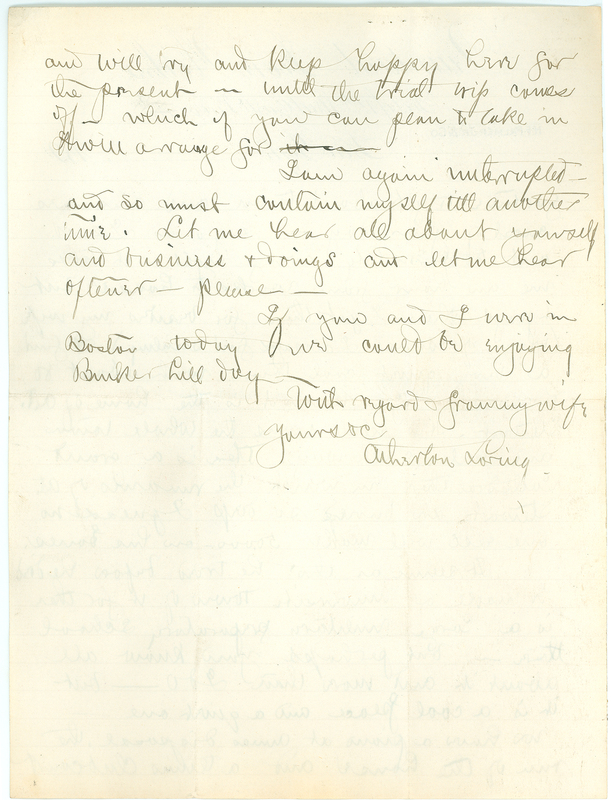 and will try and keep happy here for
the present – until the trial trip comes
off – which if you can plan to take in
I will arrange for
I am again interrupted –
and so must contain myself till another
time. Let me hear all about yourself
and business & doings and let me hear
oftener please –
If you and I were in
Boston today we could be enjoying
Bunker Hill day –
With regards from my wife
Yours &c
Atherton Loring